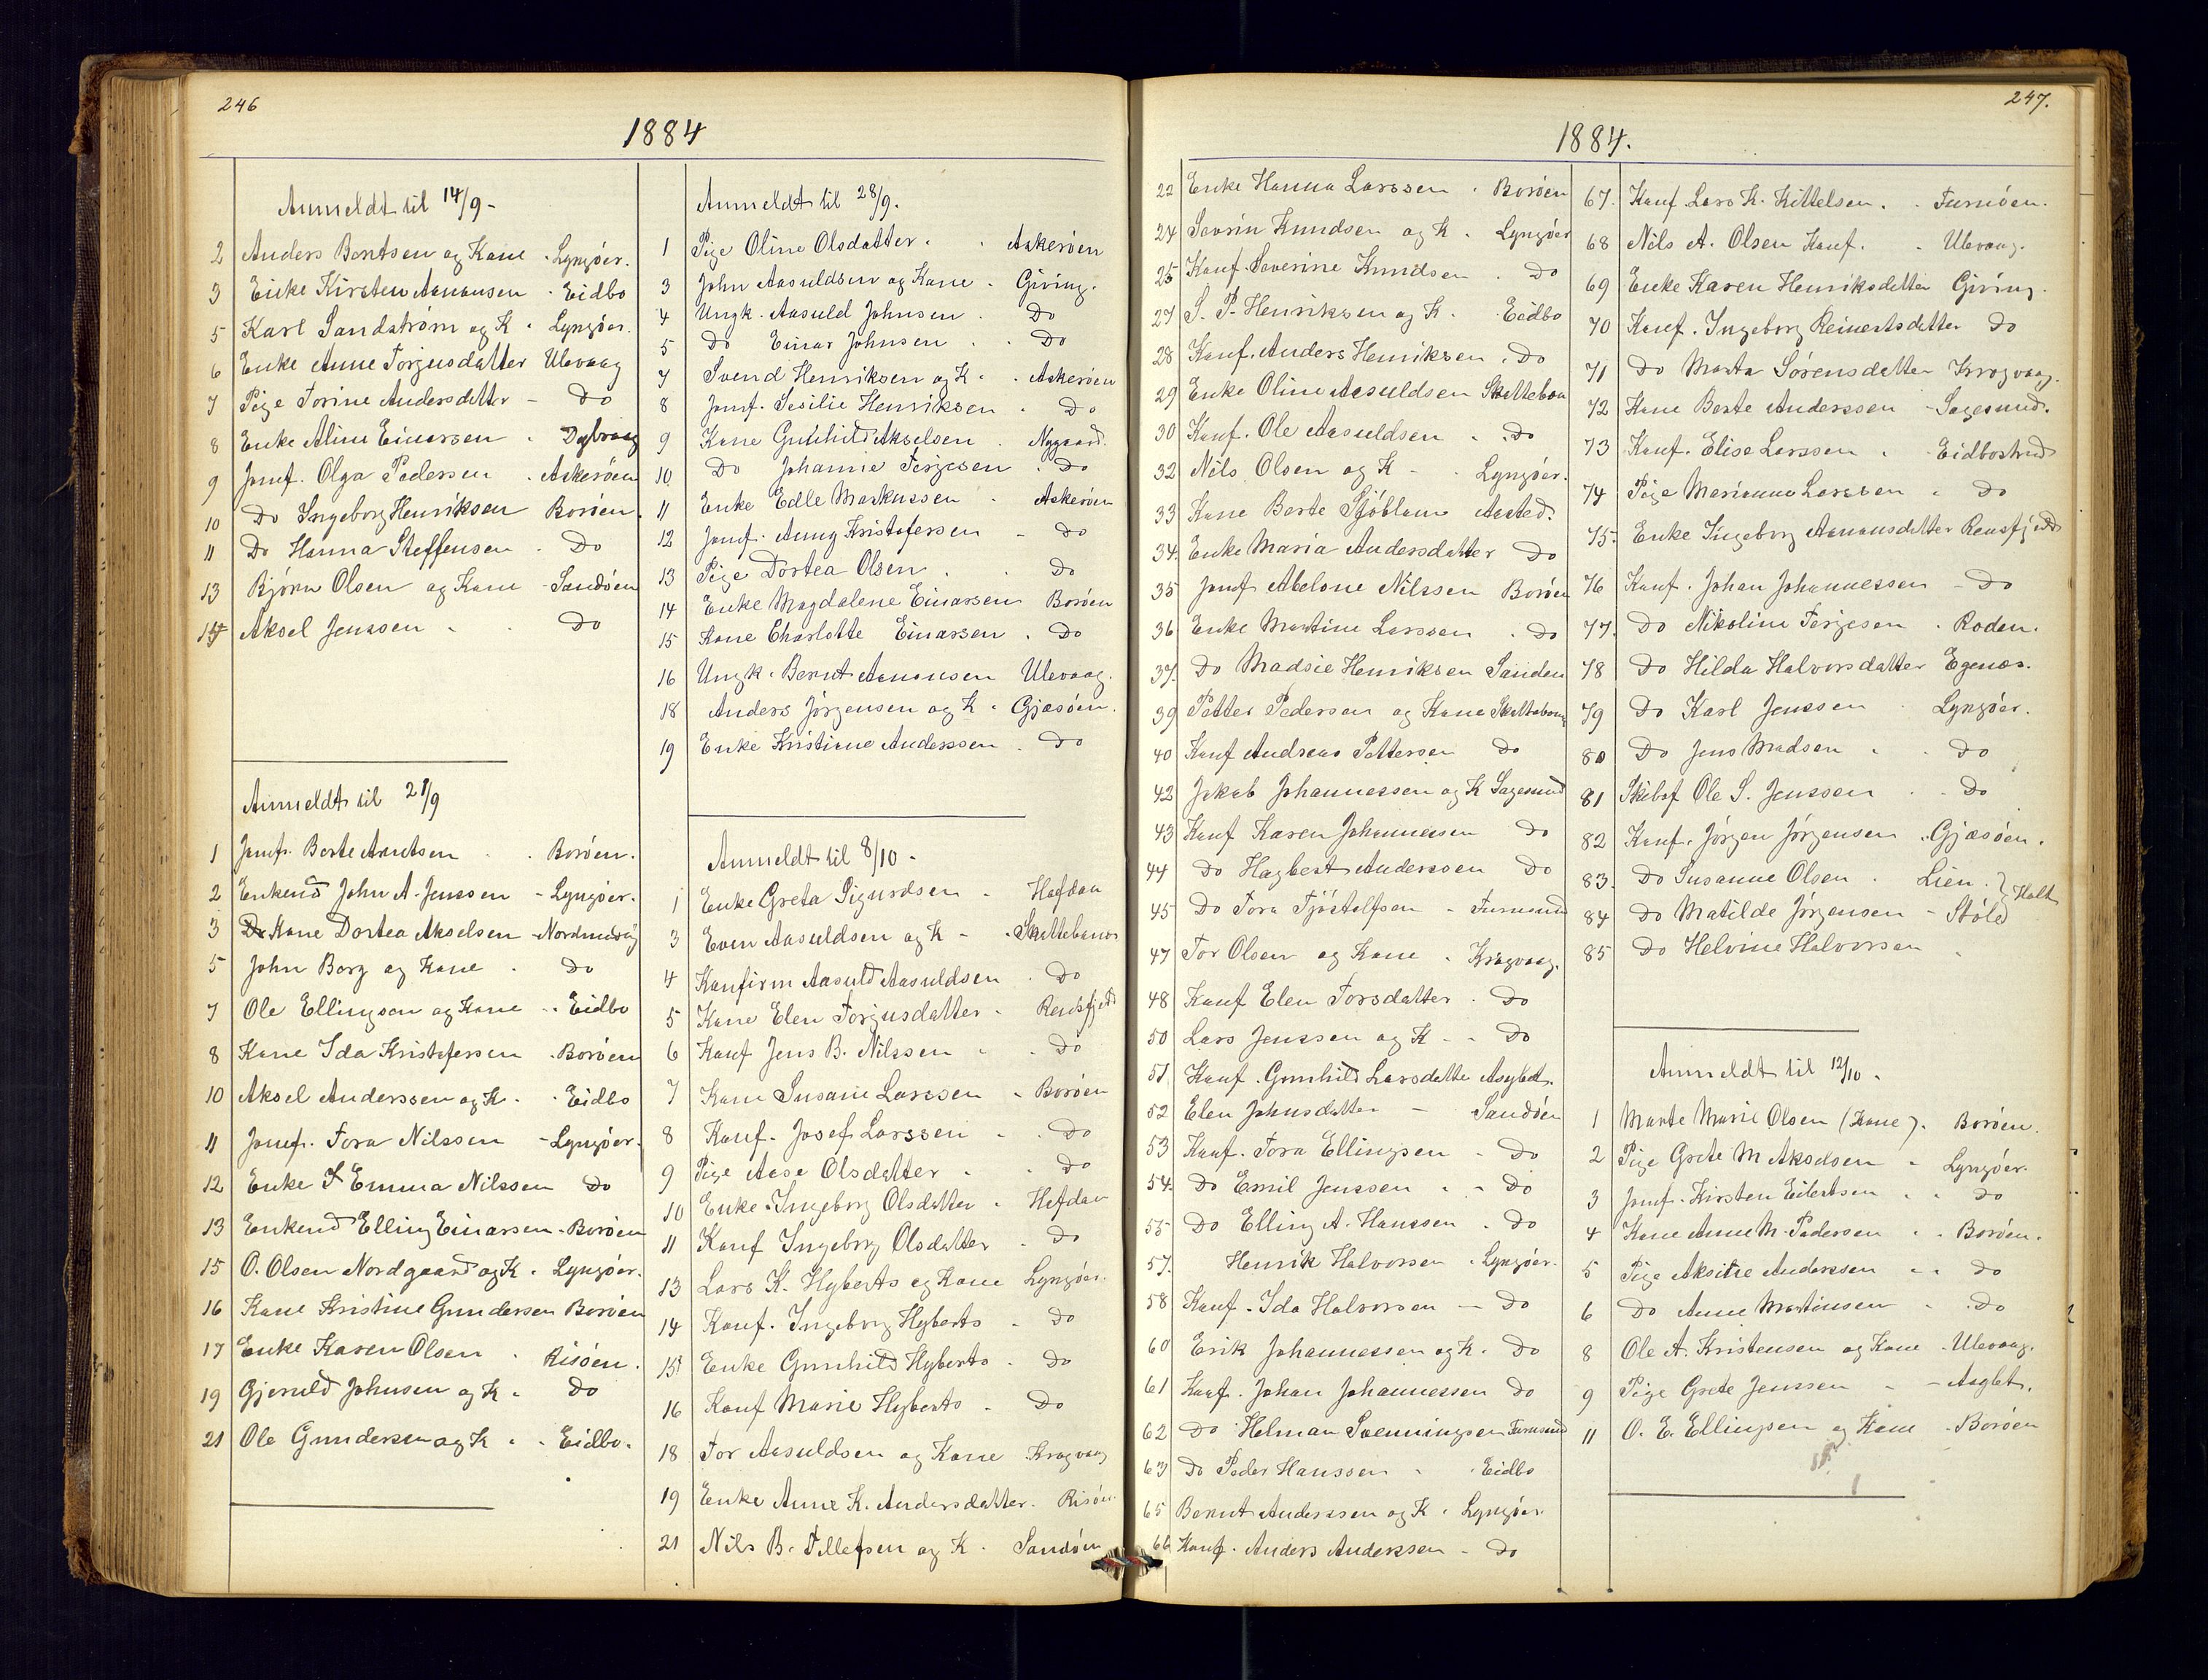 246
1884
Anmeldt til 14/9 -
2 Anders Berntsen og Kone - Lyngöer.
3 Enke Kirsten Aanonsen - Eidbo
5 Karl Sandström og K. Lyngöer.
6 Enke Anne Torjusdatter Ulevaag
7 Pige Torine Andersdatter - Do
8 Enke Aline Einarsen - Dybvaag
9 Jomf. Olga Pedersen - Askeröen
10 Do Ingeborg Henriksen Boröen.
11 Do Hanna Steffensen - Do
13 Björn Olsen og Kone - Sandöen
14 Aksel Jenssen - - Do
Anmeldt til 21/9
1 Jomfr. Berte Arntsen - - Boröen.
2 Enkemd John A. Jenssen - Lyngöer.
3 Kone Dortea Akselsen - Nordmdvig
5 John Borg og Kone - Do
7 Ole Ellingsen og Kone - - Eidbo
8 Kone Ida Kristofersen - Boröen
10 Aksel Anderssen og K - - Eidbo
11 Jomf. Tora Nilssen - Lyngöer.
12 Enke Emma Nilssen Do
13 Enkemd Elling Einarsen - Boröen
15 O. Olsen Nordgaard og K. Lyngöer.
16 Kone Kristine Gundersen Boröen
17 Enke Karen Olsen - Risöen.
19 Gjeruld Johnsen og K - Do
21 Ole Gundersen og K - - Eidbo.
Anmeldt til 28/9.
1 Pige Oline Olsdatter - - Askeröen
3 John Aasuldsen og Kone - Giving.
4 Ungk. Aasuld Johnsen - Do
5 Do Einar Johnsen - - Do
7 Svend Henriksen og K - - Askeröen
8 Jomf. Sesilie Henriksen - Do
9 Kone Gunhild Akselsen - Nygaard.
10 Do Johanne Terjesen - Do
11 Enke Edle Markussen - Askeröen
12 Jomf. Anny Kristofersen - Do
13 Pige Dortea Olsen - - Do
14 Enke Magdalene Einarsen Boröen
15 Kone Charlotte Einarsen - Do
16 Ungk. Bernt Aanonsen Ulevaag.
18 Anders Jörgensen og K - Gjæsöen.
19 Enke Kristiane Anderssen - Do
Anmeldt til 8/10 -
1 Enke Greta Sigurdsen - Hafdan
3 Even Aasuldsen og K - - Skuttebaaen
4 Konfirm Aasuld Aasuldsen - Do
5 Kone Elen Torjusdatter - Rensfjeld
6 Konf Jens B. Nilssen - - Do
7 Kone Susanie Larssen - Boröen
8 Konf. Josef Larssen - - Do
9 Pige Aase Olsdatter - - Do
10 Enke Ingeborg Olsdatter - Hefdan
11 Konf Ingeborg Olsdatter - Do
13 Lars K. Hyberts og Kone Lyngöer.
14 Konf. Ingeborg Hyberts - Do
15 Enke Gunhild Hyberts - Do
16 Konf Marie Hyberts - Do
18 Tor Aasuldsen og Kone Krogvaag
19 Enke Anne K. Andersdatter - Risöen
21 Nils B. Tillefsen og K - Sandöen
247.
1884.
22 Enke Hanna Larssen - Boröen
24 Severin Knudsen og K - Lyngöer
25 Konf. Severine Knudsen - Do
27 S. P. Henriksen og K - Eidbo
28 Konf. Anders Henriksen - Do
29 Enke Oline Aasuldsen Skuttebaa
30 Konf. Ole Aasuldsen - - Do
32 Nils Olsen og K - - Lyngöer.
33 Kone Berte Sjöblom Aasted.
34. Enke Maria Andersdatter Do
35 Jomf Abelone Nilssen Boröen
36 Enke Martine Larssen - Do
37. Do Madsie Henriksen Sanden
39 Petter Pedersen og Kone Skuttebaaen
40 Konf Andreas Pettersen Do
42 Jakob Johannessen og K Sagesund
43 Konf Karen Johannessen Do
44 Do Hagbart Anderssen Do
45 Do Tora Tjöstolfsen - Furuesund
47 Tor Olsen og Kone - Krogvaag.
48 Konf Elen Torsdatter - Do
50 Lars Jenssen og K - - Do
51. Konf. Gunhild Larsdatte Asgbet.
52 Elen Johnsdatter - Sandöen
53 Konf. Tora Ellingsen - Do
54. Do Emil Jenssen - - Do
55 Do Elling A. Hanssen - Do
57. Henrik Halvorsen - Lyngöer.
58 Konf. Ida Halvorsen - Do
60 Erik Johannessen og K. Do
61 Konf. Johan Johannessen Do
62 Do Helman Svenningsen Furusund
63 Do Peder Hanssen - Eidbo
65 Bernt Anderssen og K. Lyngöer.
66 Konf. Anders Anderssen - Do
67. Konf. Lars K. Kittelsen. - Furuöen.
68 Nils A. Olsen Konf. - Ulevaag.
69 Enke Karen Henriksdatter Giving.
70 Konf. Ingeborg Reinertsdatter Do
71 Do Marta Sörensdatter Krogvaag.
72 Kone Berte Anderssen - Sagesund.
73 Konf. Elise Larssen - - Eidbostrnd
74 Pige Marianne Larssen - Do
75. Enke Ingeborg Aanonsdatter Rensfjeld
76 Konf. Johan Johannessen - Do
77. Do Nikoline Terjesen - Roden.
78 Do Hilda Halvorsdatter Egenæs.
79 Do Karl Jenssen - Lyngöer.
80 Do Jens Madsen - - Do
81 Skibsf Ole S. Jenssen - - Do
82 Konf. Jörgen Jörgensen - Gjæsöen.
83. Do Susanne Olsen - Lien. } Holt
84 Do Matilde Jörgensen - Stöle
85 Do Helvine Halvorsen
Anmeldt til 12/10 -
1 Marte Marie Olsen (Kone). Boröen.
2 Pige Grete M Akselsen - Lyngöer.
3 Jomf. Kirsten Eilertsen - - Do
4 Kone Anne M. Pedersen - - Boröen.
5 Pige Aksine Anderssen - - Do
6 Do Anne Martinsen - - Do
8 Ole A. Kristensen og Kone - Ulevaag.
9 Pige Grete Jenssen - - Asgbet.
11 O. E. Ellingsen og Kone - Boröen